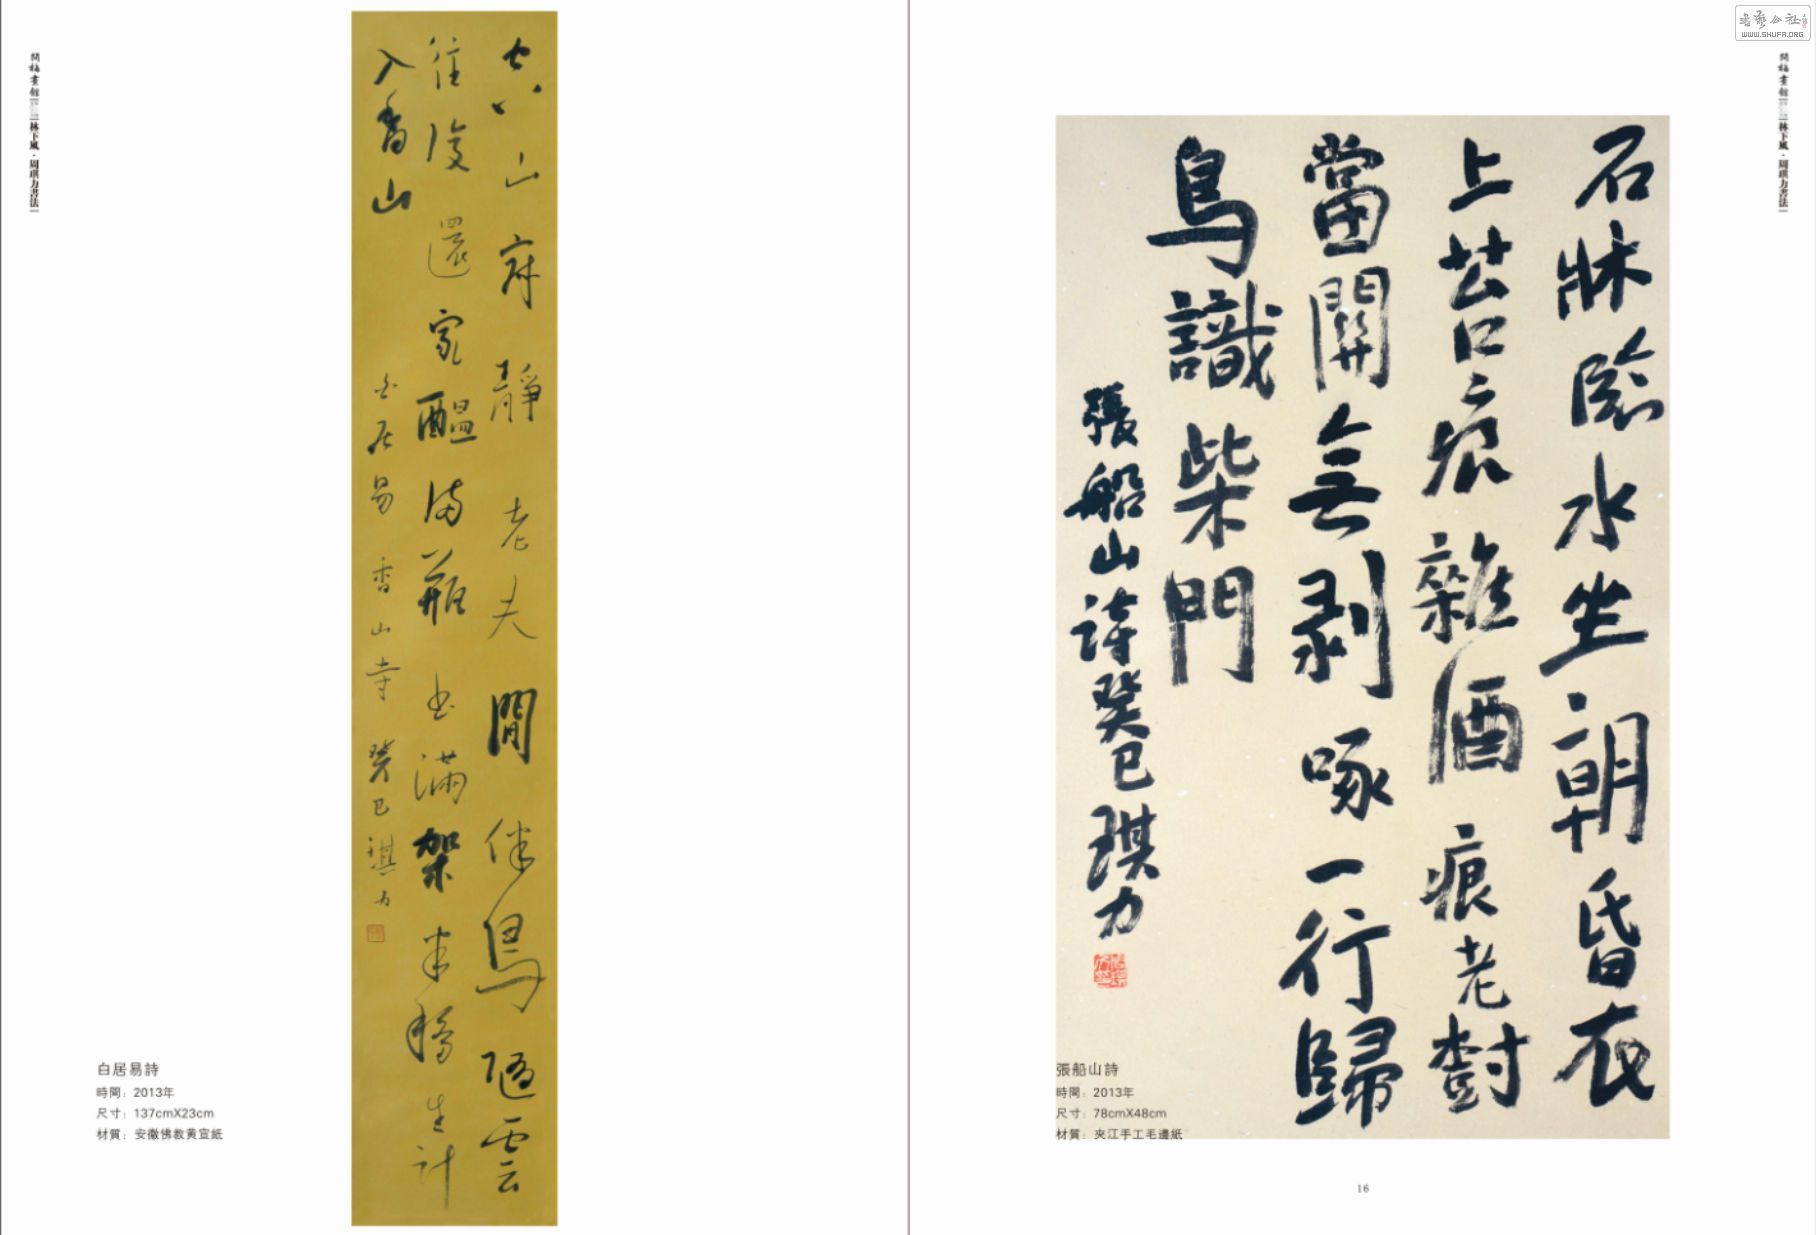 問梅畫館
林下風·周琪力書法
空山寂靜老夫閒伴鳥隨雲
往復還家醞滿瓶書滿架半移生計
入香山
白居易 香山寺 癸巳琪力
白居易詩
時間：2013年
尺寸：137cmX23cm
材質：安徽佛教黄宣紙
书艺公社
WWW.SHUFA.ORG
問梅畫館
林下風·周琪力書法
石牀臨水坐朝昏衣
上苔痕雜酒痕老樹
當關無剥啄一行歸
鳥識柴門
張船山詩癸巳琪力
張船山詩
時間：2013年
尺寸：78cmX48cm
材質：夾江手工毛邊紙
16